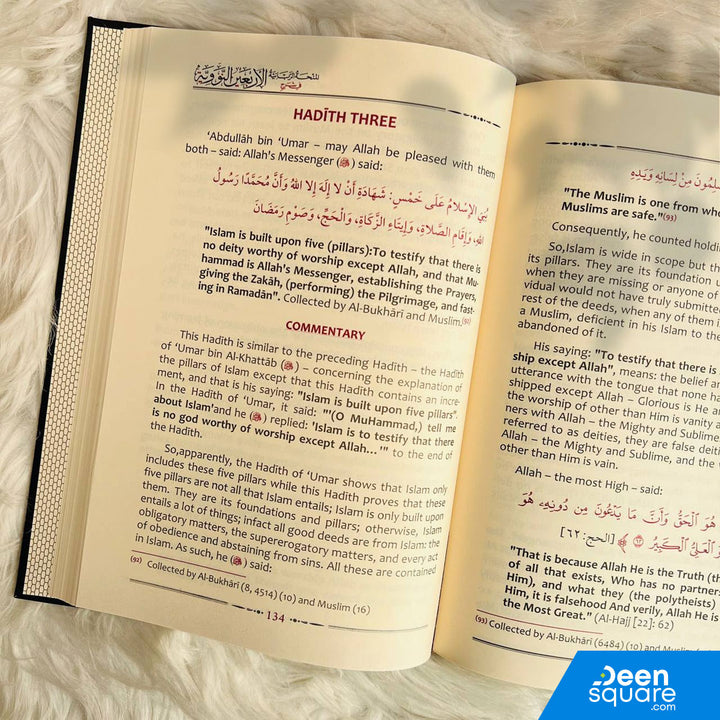 المنحة الربانية في شرح الأربعين النووية
HADĪTH THREE
'Abdullāh bin 'Umar – may Allah be pleased with them
both – said: Allah's Messenger (ﷺ) said:
بُنِيَ الإِسْلَامُ عَلَى خَمْسٍ: شَهَادَةِ أَنْ لَا إِلَهَ إِلَّا اللهُ وَأَنَّ مُحَمَّدًا رَسُولُ
اللهِ، وَإِقَامِ الصَّلَاةِ، وَإِيتَاءِ الزَّكَاةِ، وَالْحَجِّ، وَصَوْمِ رَمَضَانَ
"Islam is built upon five (pillars):To testify that there is
no deity worthy of worship except Allah, and that Mu-
hammad is Allah's Messenger, establishing the Prayers,
giving the Zakāh, (performing) the Pilgrimage, and fast-
ing in Ramadān". Collected by Al-Bukhārī and Muslim.(92)
COMMENTARY
This Hadīth is similar to the preceding Hadīth – the Hadīth
of 'Umar bin Al-Khattāb – concerning the explanation of
the pillars of Islam except that this Hadīth contains an incre-
ment, and that is his saying: "Islam is built upon five pillars".
In the Hadīth of 'Umar, it said: "'(O MuHammad,) tell me
about Islam'and he (ﷺ) replied: 'Islam is to testify that there
is no god worthy of worship except Allah...'" to the end of
the Hadīth.
So,apparently, the Hadīth of 'Umar shows that Islam only
includes these five pillars while this Hadīth proves that these
five pillars are not all that Islam entails; Islam is only built upon
them. They are its foundations and pillars; otherwise, Islam
entails a lot of things; infact all good deeds are from Islam: the
obligatory matters, the supererogatory matters, and every act
of obedience and abstaining from sins. All these are contained
in Islam. As such, he (ﷺ) said:
(92) Collected by Al-Bukhārī (8, 4514) (10) and Muslim (16)
134
لِمُونَ مِنْ لِسَانِهِ وَيَدِهِ
"The Muslim is one from who
Muslims are safe."(93)
Consequently, he counted holdin
So,Islam is wide in scope but th
its pillars. They are its foundation u
when they are missing or anyone of
vidual would not have truly submitted
rest of the deeds, when any of them i
a Muslim, deficient in his Islam to the
abandoned of it.
His saying: "To testify that there is
ship except Allah", means: the belief a
utterance with the tongue that none ha
shipped except Allah – Glorious is He a
the worship of other than Him is vanity a
ners with Allah – the Mighty and Sublime
referred to as deities, they are false deiti
Allah – the Mighty and Sublime, and the w
other than Him is vain.
Allah – the most High – said:
هُوَ ٱلْحَقُّ وَأَنَّ مَا يَدْعُونَ مِن دُونِهِۦ هُوَ
هُوَ ٱلْعَلِىُّ ٱلْكَبِيرُ ﴾ [الحج: ٦٢]
"That is because Allah He is the Truth (th
of all that exists, Who has no partners
Him), and what they (the polytheists)
Him, it is falsehood And verily, Allah He is
the Most Great." (Al-Hajj [22]: 62)
(93) Collected by Al-Bukhārī (6484) (10) and Muslim
Deen
square
.com